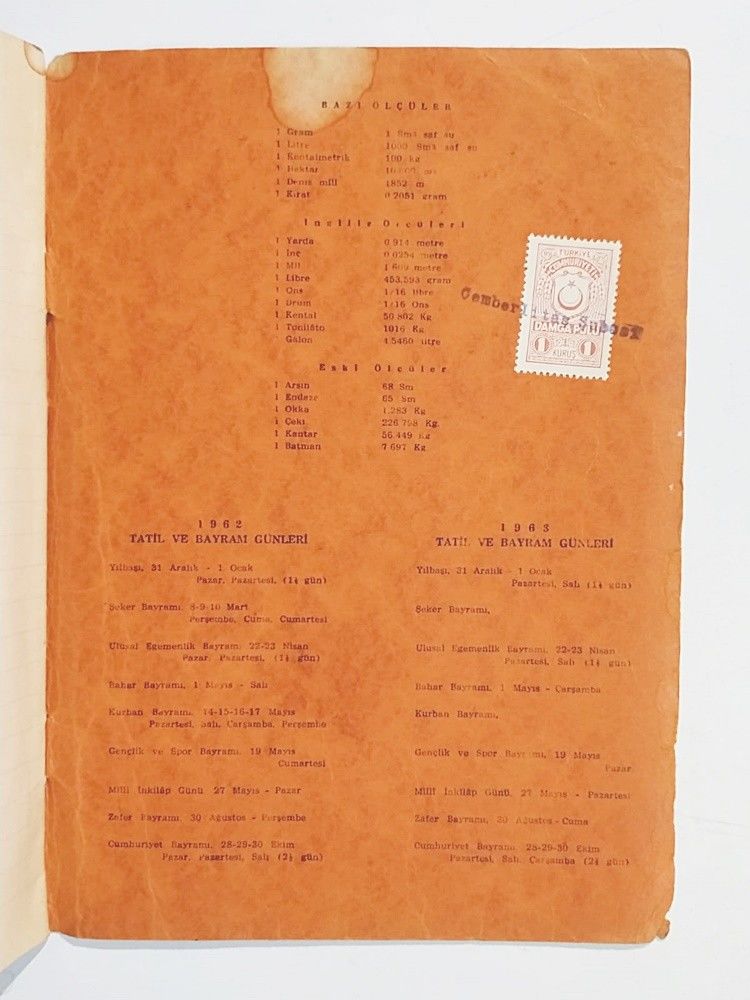 BAZI ÖLÇÜLER
1 Gram 1 Sm3 saf su
1 Litre 1000 Sm3 saf su
1 Kentalmetrik 100 kg
1 Hektar
1 Deniz mili 1852 m
1 Kırat 0.2051 gram
İngiliz Ölçüleri
1 Yarda 0.914 metre
1 İnç 0.0254 metre
1 Mil 1.609 metre
1 Libre 453.593 gram
1 Ons 1/16 libre
1 Drum 1/16 Ons
1 Kental 50.802 Kg
1 Tonilâto 1016 Kg
Galon 4.5460 litre
Eski Ölçüler
1 Arşın 68 Sm
1 Endaze 65 Sm
1 Okka 1.283 Kg
1 Çeki 226.798 Kg.
1 Kantar 56.449 Kg
1 Batman 7.697 Kg
TÜRKİYE
CUMHURİYETİ
DAMGA PULU
1 1
KURUŞ
Çemberlitaş Şubesi
1962
TATİL VE BAYRAM GÜNLERİ
Yılbaşı, 31 Aralık - 1 Ocak
Pazar, Pazartesi, (1½ gün)
Şeker Bayramı, 8-9-10 Mart
Perşembe, Cuma, Cumartesi
Ulusal Egemenlik Bayramı 22-23 Nisan
Pazar, Pazartesi, (1½ gün)
Bahar Bayramı, 1 Mayıs - Salı
Kurban Bayramı, 14-15-16-17 Mayıs
Pazartesi, Salı, Çarşamba, Perşembe
Gençlik ve Spor Bayramı, 19 Mayıs
Cumartesi
Milli İnkilâp Günü 27 Mayıs - Pazar
Zafer Bayramı, 30 Ağustos - Perşembe
Cumhuriyet Bayramı, 28-29-30 Ekim
Pazar, Pazartesi, Salı (2½ gün)
1963
TATİL VE BAYRAM GÜNLERİ
Yılbaşı, 31 Aralık - 1 Ocak
Pazartesi, Salı (1½ gün)
Şeker Bayramı,
Ulusal Egemenlik Bayramı, 22-23 Nisan
Pazartesi, Salı (1½ gün)
Bahar Bayramı, 1 Mayıs - Çarşamba
Kurban Bayramı,
Gençlik ve Spor Bayramı, 19 Mayıs
Pazar
Milli İnkilâp Günü, 27 Mayıs - Pazartesi
Zafer Bayramı, 30 Ağustos - Cuma
Cumhuriyet Bayramı, 28-29-30 Ekim
Pazartesi, Salı, Çarşamba (2½ gün)